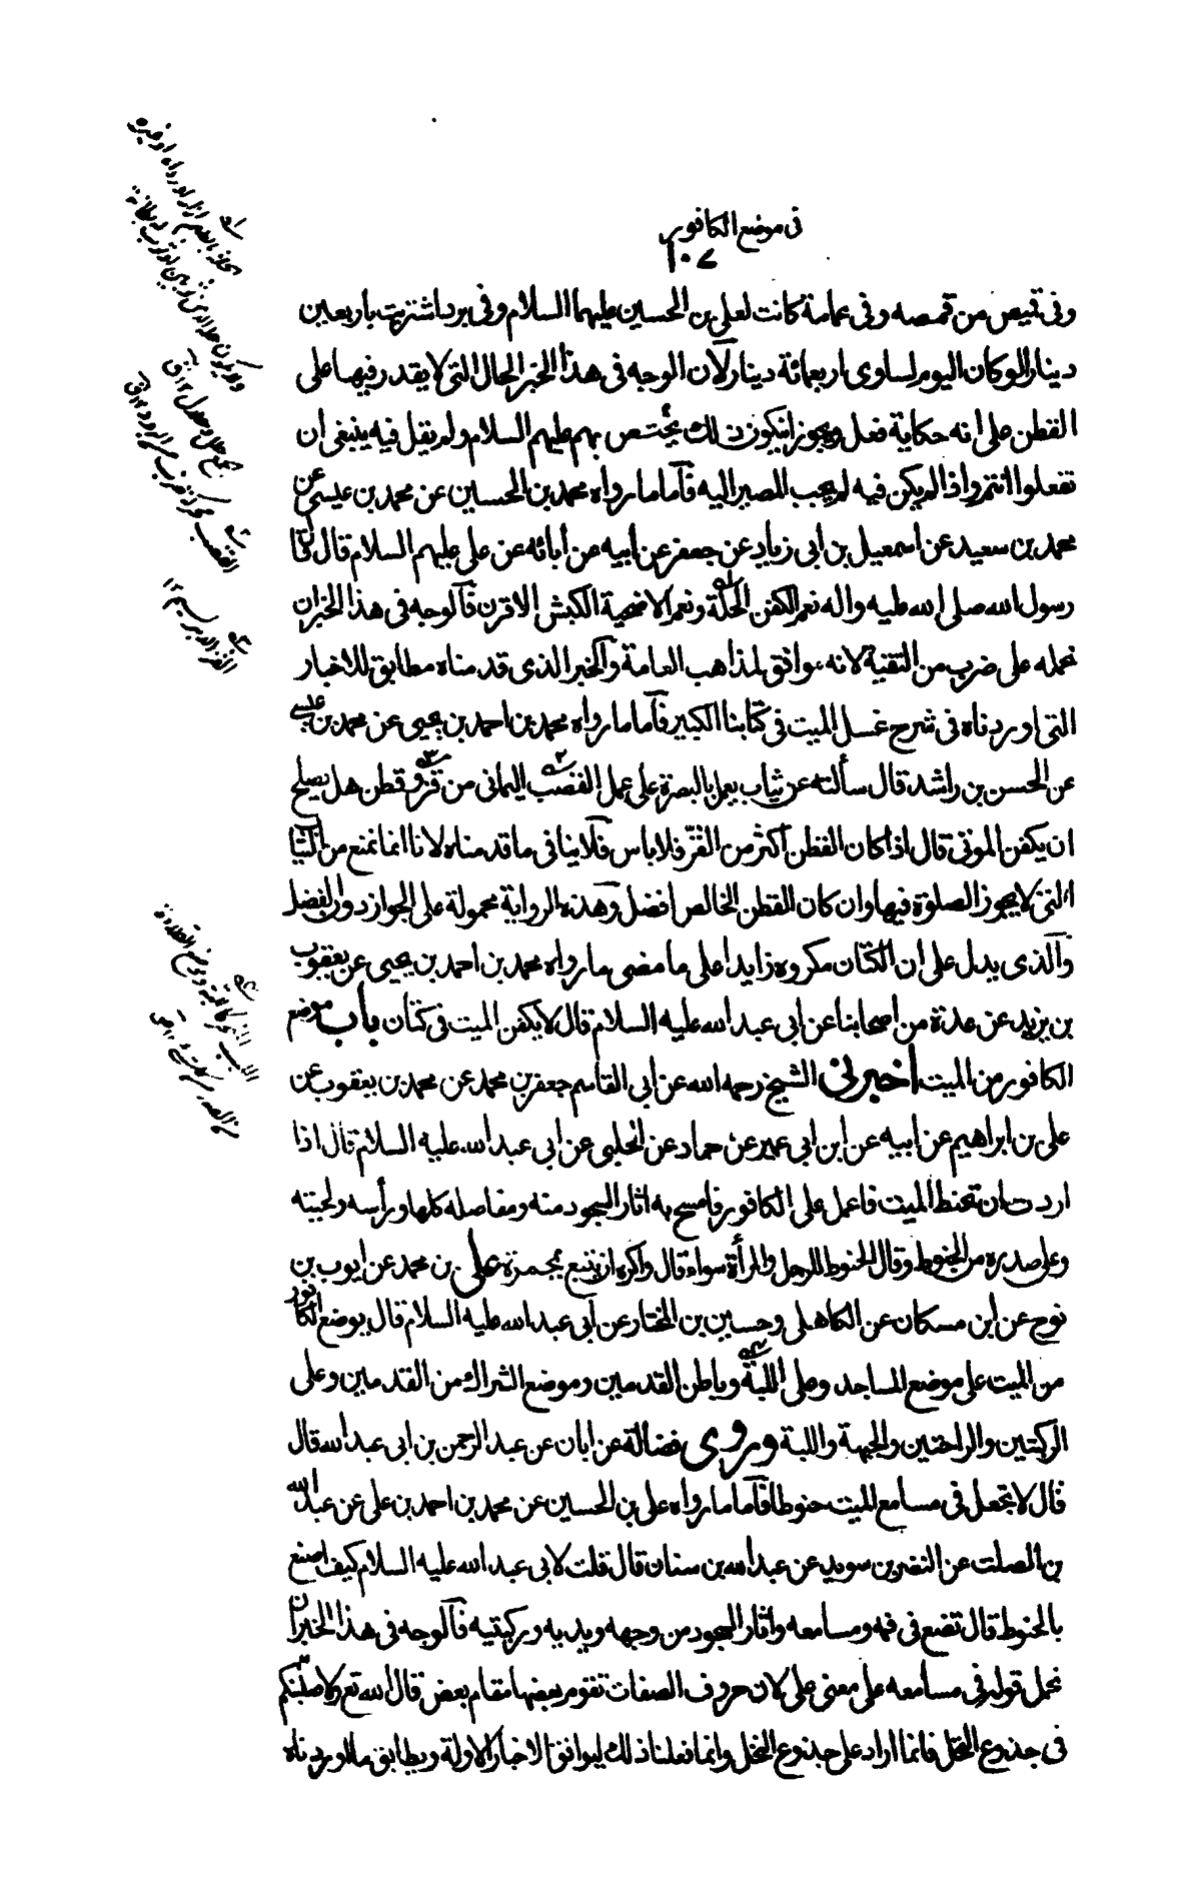 فى موضع الكافور
١٠٧
وفى قميص من قمصه وفى عمامة كانت لعلى بن الحسين عليهما السلام وفى برد اشتريت باربعين
دينارا لو كان اليوم لساوى اربعمائة دينار لان الوجه فى هذا الخبر الحال التى لا يقدر فيها على
القطن على انه حكاية فعل ويجوز ان يكون ذلك يختص بهم عليهم السلام ولم يقل فيه ينبغى ان
تفعلوا انتم واذا لم يكن فيه لم يجب المصير اليه فاما ما رواه محمد بن الحسين عن محمد بن عيسى عن
محمد بن سعيد عن اسمعيل بن ابى زياد عن جعفر عن ابيه عن أبائه عن على عليهم السلام قال قال
رسول الله صلى الله عليه واله نعم الكفن الحلة ونعم الاضحية الكبش الاقرن فالوجه فى هذا الخبر ان
نحمله على ضرب من التقية لانه موافق لمذاهب العامة والخبر الذى قدمناه مطابق للاخبار
التى اوردناه فى شرح غسل الميت فى كتابنا الكبير فاما ما رواه محمد بن احمد بن يحيى عن محمد بن عيسى
عن الحسن بن راشد قال سألته عن ثياب يعمل بالبصرة على عمل القصب اليمانى من قز وقطن هل يصلح
ان يكفن الموتى قال اذا كان القطن اكثر من القز فلا باس فلا ينافى ما قدمناه لانا انما نمنع من الثيا
التى لا يجوز الصلوة فيها وان كان القطن الخالص افضل وهذه الرواية محمولة على الجواز دون الفضل
والذى يدل على ان الكتان مكروه زايدا على ما مضى ما رواه محمد بن احمد بن يحيى عن يعقوب
بن يزيد عن عدة من اصحابنا عن ابى عبد الله عليه السلام قال لا يكفن الميت فى كتان باب موضع
الكافور من الميت اخبرنى الشيخ رحمه الله عن ابى القاسم جعفر بن محمد عن محمد بن يعقوب عن
على بن ابراهيم عن ابيه عن ابن ابى عمير عن حماد عن الحلبى عن ابى عبد الله عليه السلام قال اذا
اردت ان تحنط الميت فاعمل على الكافور فامسح به اثار السجود منه ومفاصله كلها ورأسه ولحيته
وعلى صدره من الحنوط وقال الحنوط للرجل والمرأة سواء قال واكره ان يتبع بمجمرة على بن محمد عن ايوب بن
نوح عن ابن مسكان عن الكاهلى وحسين بن المختار عن ابى عبد الله عليه السلام قال يوضع الكافور
من الميت على موضع المساجد وعلى اللبة وباطن القدمين وموضع الشراك من القدمين وعلى
الركبتين والراحتين والجبهة واللبة وروى فضالة عن ابان عن عبد الرحمن بن ابى عبد الله قال
قال لا تجعل فى مسامع الميت حنوطا فاما ما رواه على بن الحسين عن محمد بن احمد بن على عن عبد الله
بن الصلت عن النضر بن سويد عن عبد الله بن سنان قال قلت لابى عبد الله عليه السلام كيف اصنع
بالحنوط قال تضع فى فمه ومسامعه واثار السجود من وجهه ويديه وركبتيه فالوجه فى هذا الخبر ان
نحمل قوله فى مسامعه على معنى على لان حروف الصفات تقوم بعضها مقام بعض قال الله تع ولاصلبنكم
فى جذوع النخل فانما اراد على جذوع النخل وانما فعلنا ذلك ليوافق الاخبار الاولة ويطابق ما اوردناه